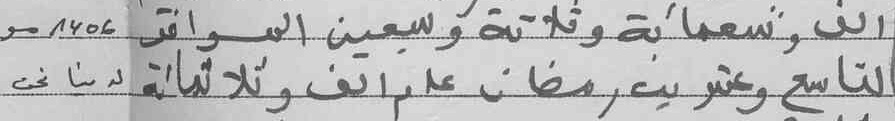 الف وتسعمائة وثلاثة وسبعين الموافق
التاسع وعشرين رمضان عام الف وثلاثمائة